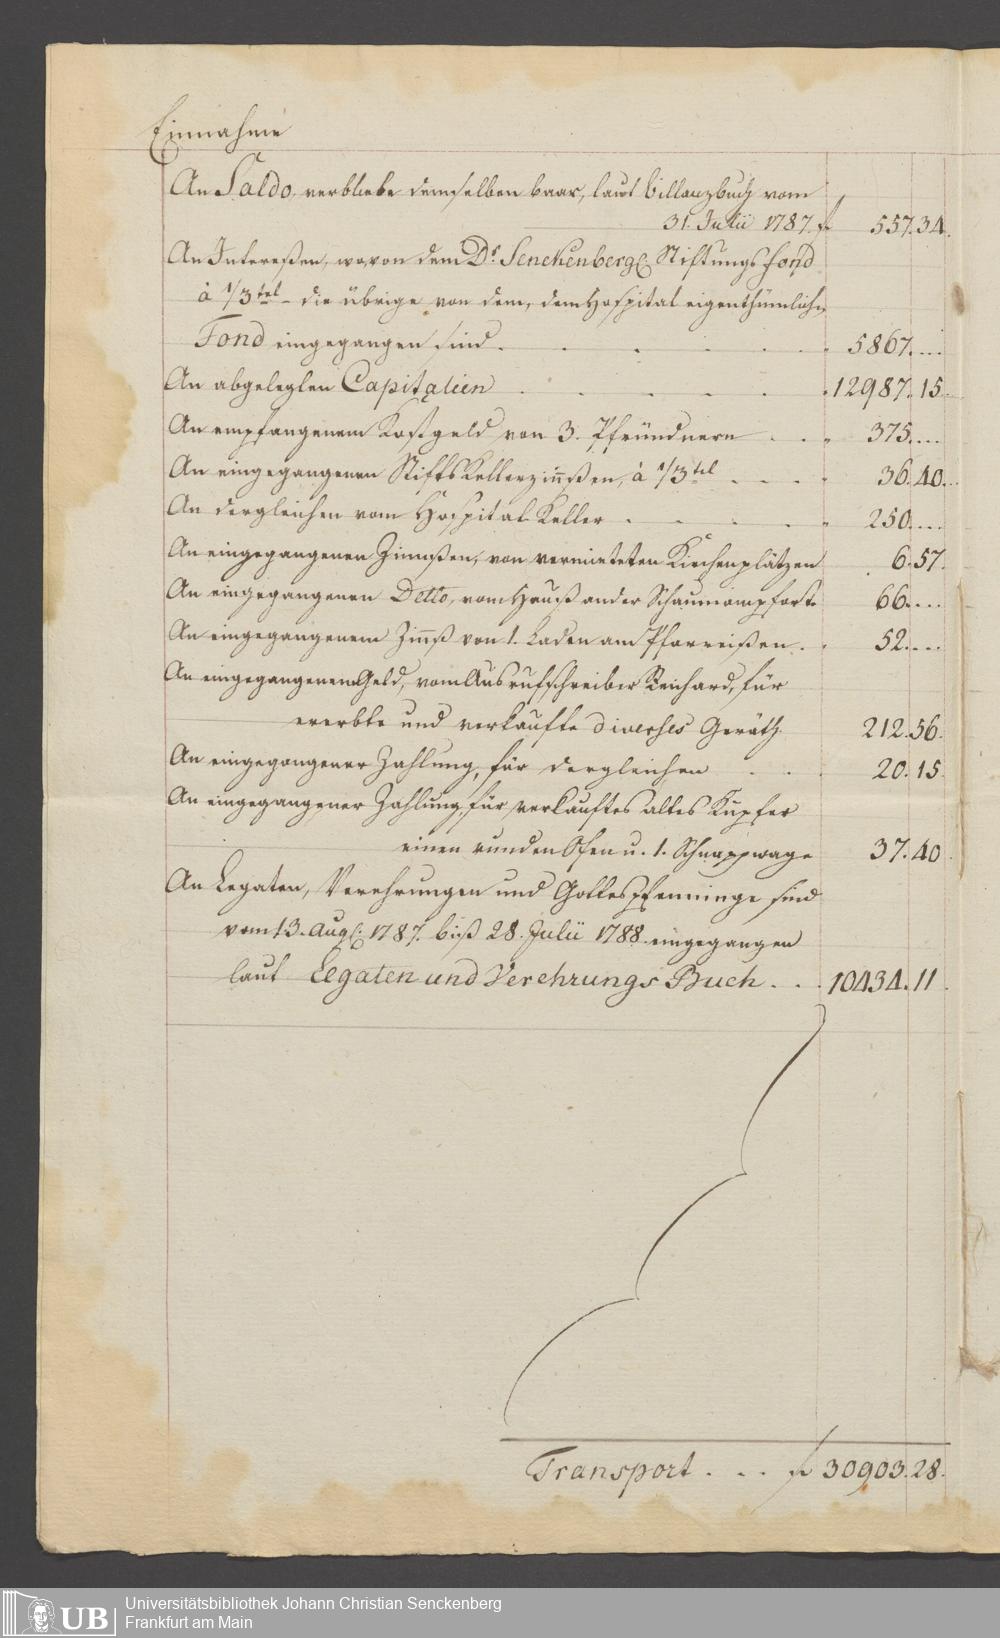 Einnahme
An Saldo, verbliebe demselben baar, laut Billanzbuch vom
31. Julii 1787. f 557. 34.
An Intereßen, wovon dem Dr. Senckenbergl. Stiftungs fond
à 1/3tel die übrige von dem, dem Hospital eigenthümlichn
Fond eingegangen sind. . . . . . . 5867. ...
An abgelegten Capitalien . . . . . . 12987. 15.
An empfangenem Kostgeld von 3. Pfründnern . . . 375. ...
An eingegangenen StiftsKellerzinnßen, à 1/3tel . . . . 36. 40.
An dergleichen vom Hospital Keller . . . . . 250. ...
An eingegangenen Zinnßen, von vermieteten Kirchenplätzen 6. 57.
An eingegangenen Detto, vom Hauß an der Schaumainpforte 66. ...
An eingegangenem Zinnß von 1. Laden am Pfarreißen . . 52. ...
An eingegangenem Geld, vom Ausrufschreiber Reichard, für
ererbte und verkaufte diverses Geräth 212. 56.
An eingegangener Zahlung, für dergleichen . . . 20. 15.
An eingegangener Zahlung, für verkauftes altes Kupfer
einen runden Ofen u. 1. Schnappwage 37. 40.
An Legaten, Verehrungen und Gottespfenninge sind
vom 13. Augl: 1787. biß 28. Julii 1788. eingegangen
laut Legaten und Verehrungs Buch . . . 10434. 11.
Transport . . . f 30903. 28.
UB
Universitätsbibliothek Johann Christian Senckenberg
Frankfurt am Main